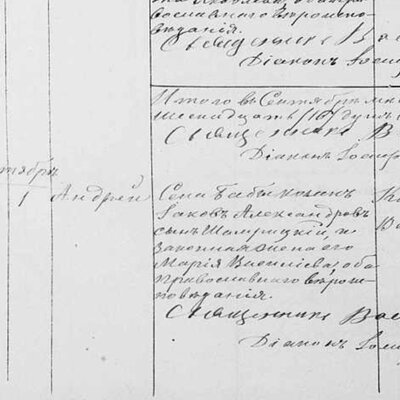 вославнаго вѣроиспо-
вѣданія.
Священникъ Ва
Діаконъ Іоси
Итого въ Сентябрѣ мѣс
шестнадцать (16) душъ
Священникъ В
Діаконъ Іосиф
тябрь
1 Андрей
Села
Іаковъ Александровъ
сынъ и
законная жена его
Марія Василіева, оба
православнаго вѣроис-
повѣданія.
Священникъ Вас
Діаконъ Іоси